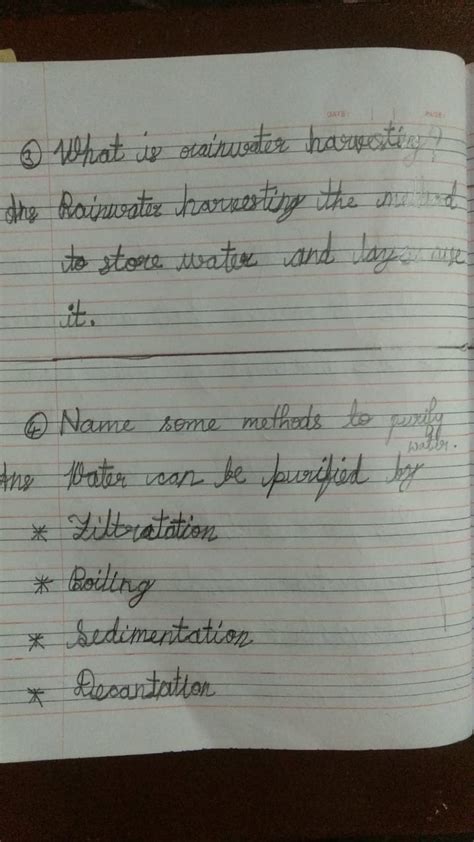 DATE: PAGE:
③ What is rainwater harvesting?
Ans Rainwater harvesting the method
to store water and layer use
it.
④ Name some methods to purify
water.
Ans Water can be purified by
* Filtratation
* Boiling
* Sedimentation
* Decantation